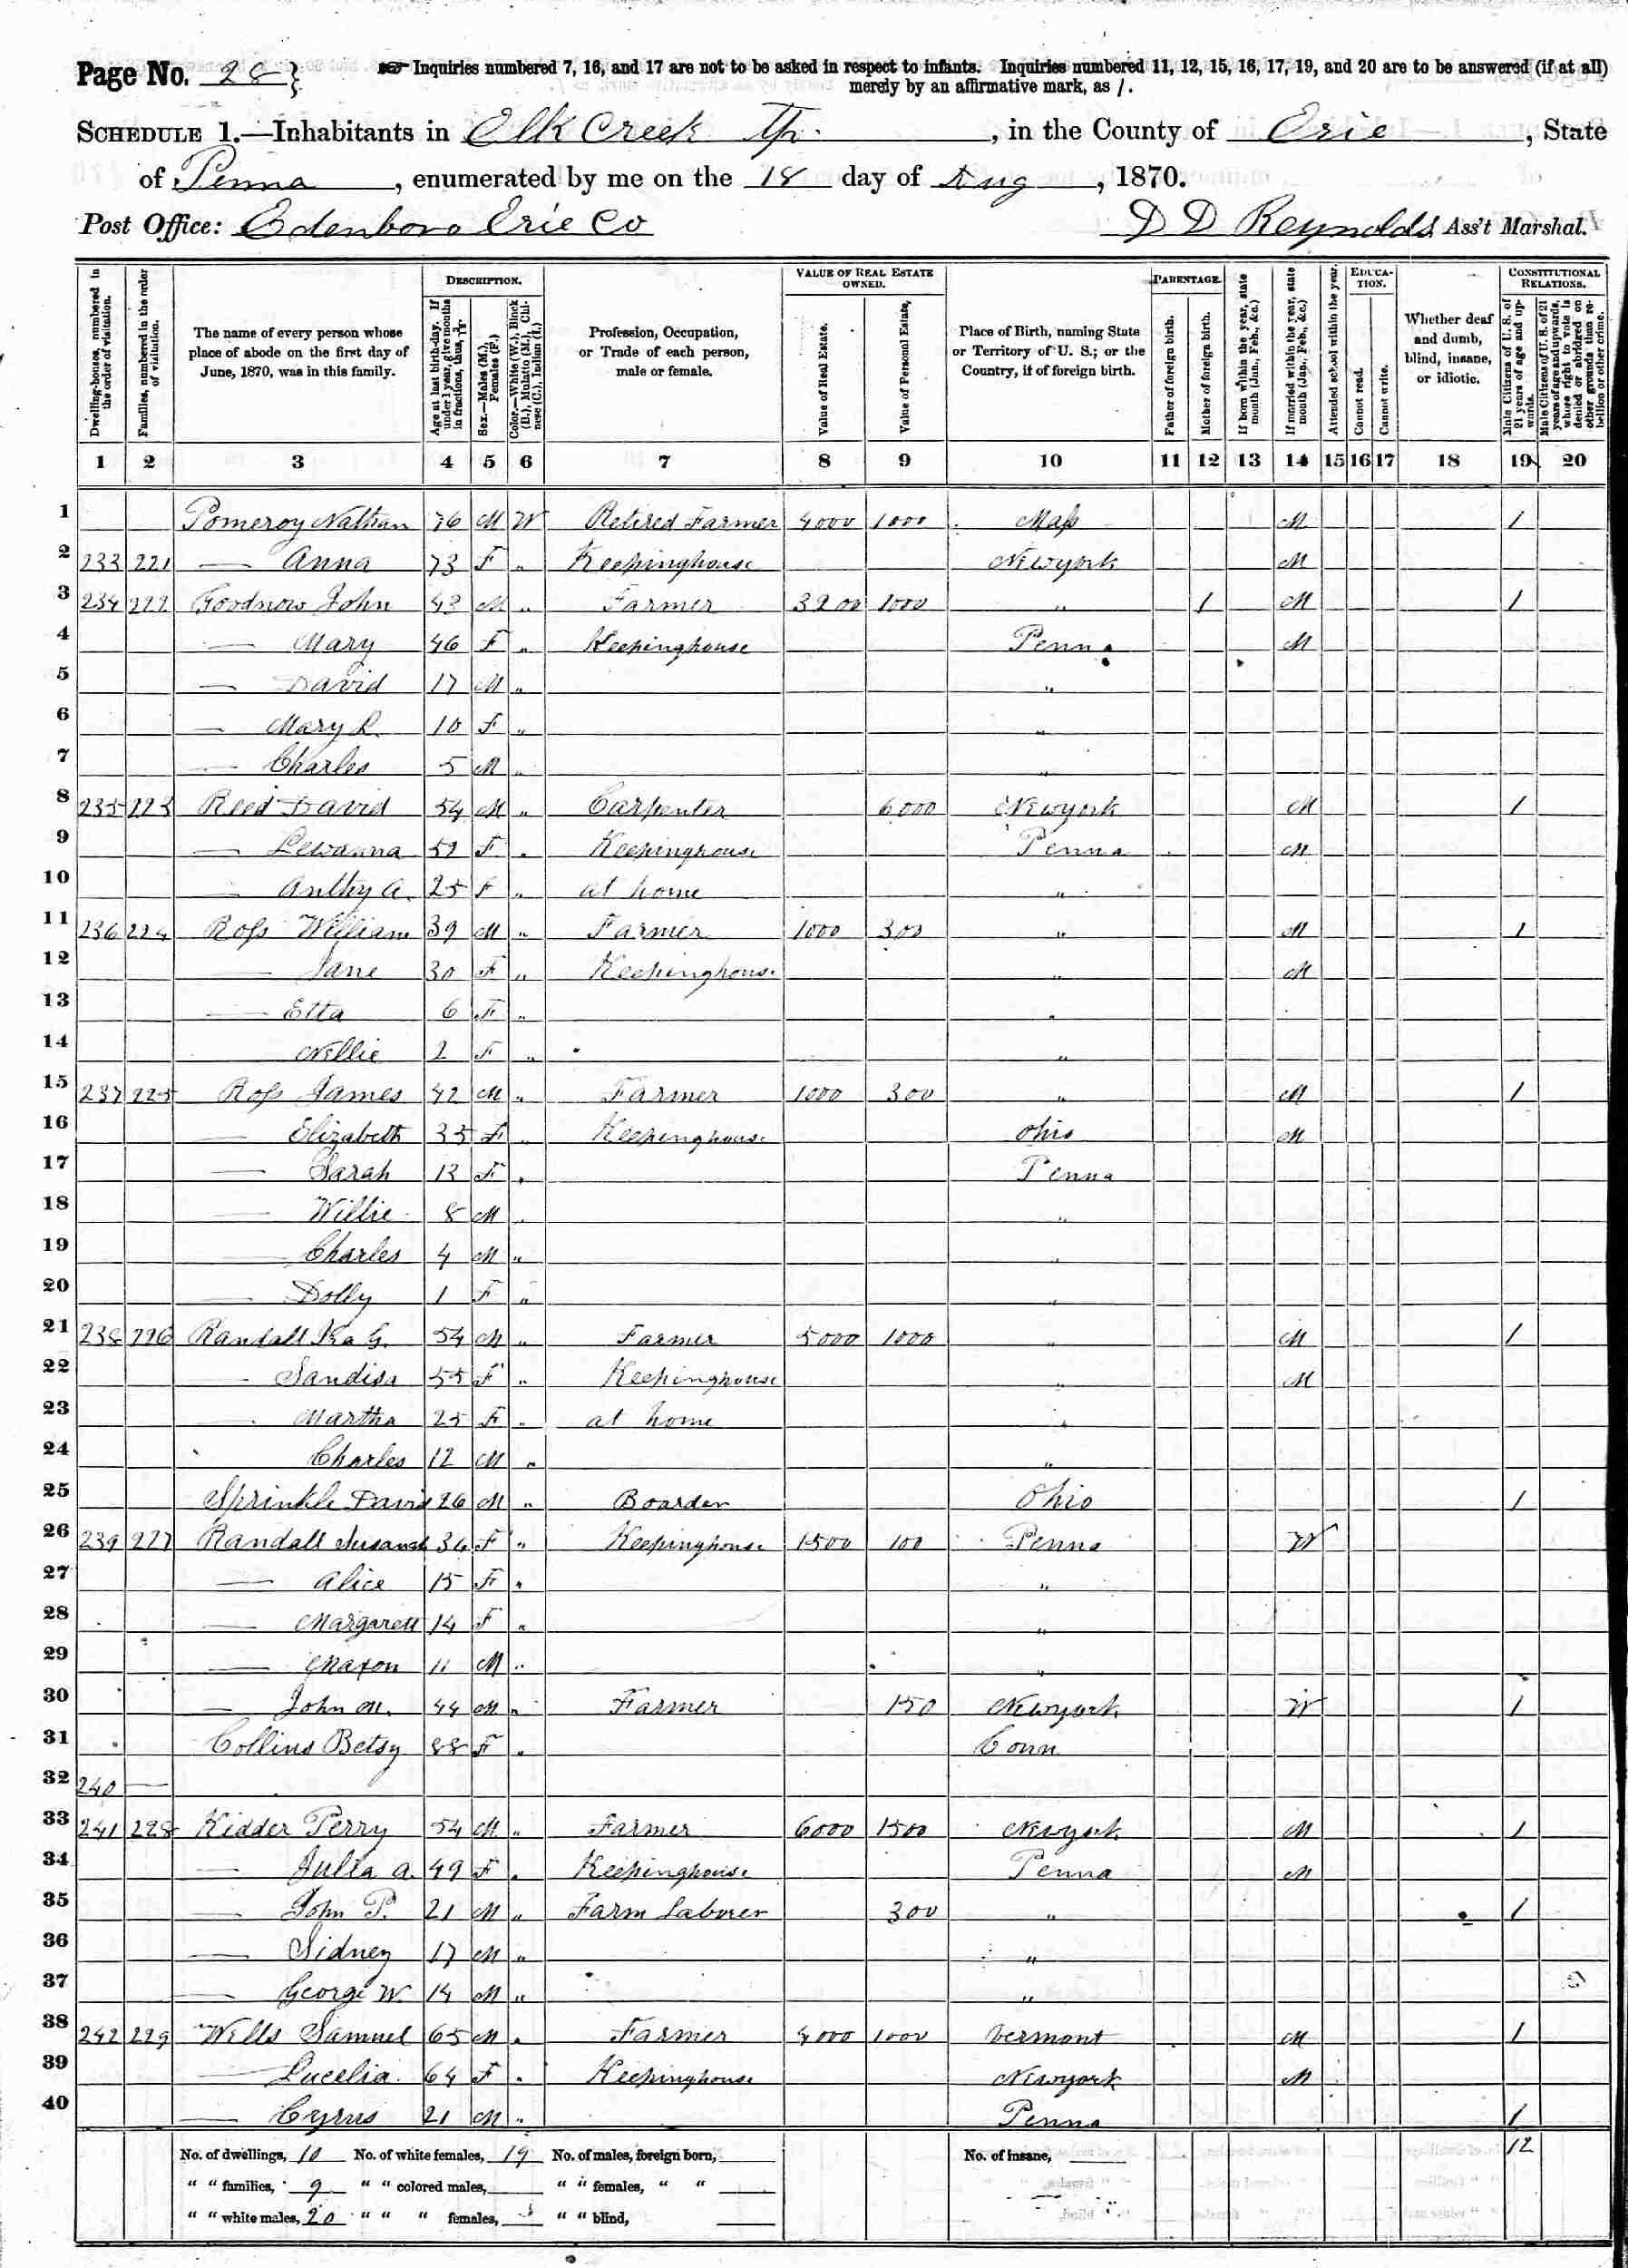 Page No. 28 } ☞ Inquiries numbered 7, 16, and 17 are not to be asked in respect to infants. Inquiries numbered 11, 12, 15, 16, 17, 19, and 20 are to be answered (if at all)
merely by an affirmative mark, as /.
SCHEDULE 1.—Inhabitants in Elk Creek Tp. , in the County of Erie , State
of Penna , enumerated by me on the 18 day of Aug , 1870.
Post Office: Edenboro Erie Co D D Reynolds Ass't Marshal.
Dwelling-houses, numbered in the order of visitation.
Families, numbered in the order of visitation.
The name of every person whose place of abode on the first day of June, 1870, was in this family.
DESCRIPTION.
Age at last birth-day. If under 1 year, give months in fractions, thus, 3/12.
Sex.—Males (M.), Females (F.)
Color.—White (W.), Black (B.), Mulatto (M.), Chinese (C.), Indian (I.)
Profession, Occupation, or Trade of each person, male or female.
VALUE OF REAL ESTATE OWNED.
Value of Real Estate.
Value of Personal Estate.
Place of Birth, naming State or Territory of U. S.; or the Country, if of foreign birth.
PARENTAGE.
Father of foreign birth.
Mother of foreign birth.
If born within the year, state month (Jan., Feb., &c.)
If married within the year, state month (Jan., Feb., &c.)
Attended school within the year.
EDUCATION.
Cannot read.
Cannot write.
Whether deaf and dumb, blind, insane, or idiotic.
CONSTITUTIONAL RELATIONS.
Male Citizens of U. S. of 21 years of age and upwards.
Male Citizens of U. S. of 21 years of age and upwards, whose right to vote is denied or abridged on other grounds than rebellion or other crime.
1 2 3 4 5 6 7 8 9 10 11 12 13 14 15 16 17 18 19 20
1 Pomeroy Nathan 76 M W Retired Farmer 4000 1000 Mass M /
2 233 221 — Anna 73 F " Keepinghouse Newyork M
3 234 222 Goodnow John 43 M " Farmer 3200 1000 " / M /
4 — Mary 46 F " Keepinghouse Penna M
5 — David 17 M " "
6 — Mary L. 10 F " "
7 — Charles 5 M " "
8 235 223 Reed David 54 M " Carpenter 6000 Newyork M /
9 — Lewanna 52 F " Keepinghouse Penna M
10 — A. 25 F " at home "
11 236 224 Ross William 39 M " Farmer 1000 300 " M /
12 — Jane 30 F " Keepinghouse " M
13 — Etta 6 F " "
14 Nellie 2 F " "
15 237 225 Ross James 42 M " Farmer 1000 300 " M /
16 — Elizabeth 35 F " Keepinghouse Ohio M
17 — Sarah 13 F " Penna
18 — Willie 8 M " "
19 — Charles 4 M " "
20 — Dolly 1 F " "
21 238 226 Randall Ira G. 54 M " Farmer 5000 1000 " M /
22 — 55 F " Keepinghouse " M
23 — Martha 25 F " at home "
24 Charles 12 M " "
25 Sprinkle David 26 M " Boarder Ohio /
26 239 227 Randall Susanah 36 F " Keepinghouse 1500 100 Penna W
27 — Alice 15 F " "
28 — Margarett 14 F " "
29 — Maxon 11 M " "
30 — John M. 44 M " Farmer 150 Newyork W /
31 Collins Betsy 88 F " Conn
32 240 —
33 241 228 Kidder Perry 54 M " Farmer 6000 1500 Newyork M /
34 — Julia A. 49 F " Keepinghouse Penna M
35 — John P. 21 M " Farm Laborer 300 " /
36 — Sidney 17 M " "
37 — George W. 14 M " "
38 242 229 Wells Samuel 65 M " Farmer 4000 1000 Vermont M /
39 — Lucelia 64 F " Keepinghouse Newyork M
40 — Cyrus 21 M " Penna /
No. of dwellings, 10 No. of white females, 19 No. of males, foreign born, No. of insane, 12
" " families, 9 " " colored males, " " females, " "
" " white males, 20 " " " females, " " blind,